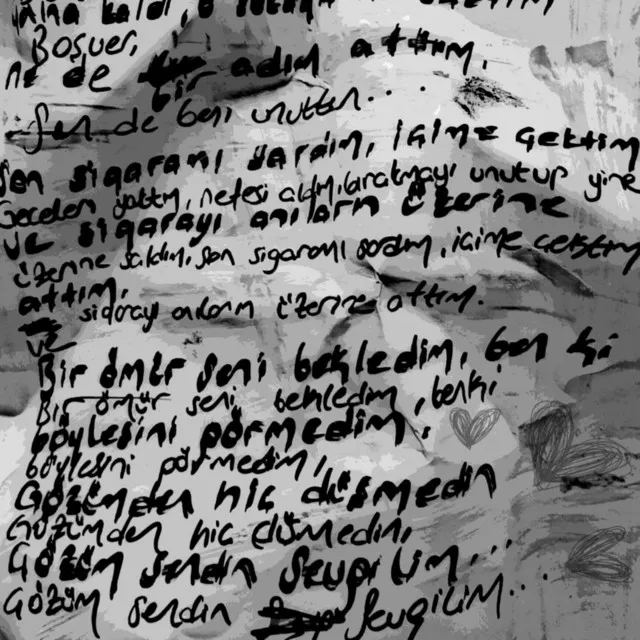 Boşver,
ne de bir adım attım,
Sen de beni unuttun...
Son sigaramı sardım, içime çektim
Geceden yattım, nefes aldım, unutup yine
ve sigarayı anıların üzerine
üzerine saldım, son sigaramı sardım, içime çektim
attım,
üzerine attım.
ve
Bir ömür seni bekledim, ben ki
Bir ömür seni bekledim, belki
böylesini görmedim,
böylesini görmedim,
Gözümden hiç düşmedin
Gözümden hic düşmedin,
Gözüm sendin Sevgilim...
Gözüm sendin Sevgilim...